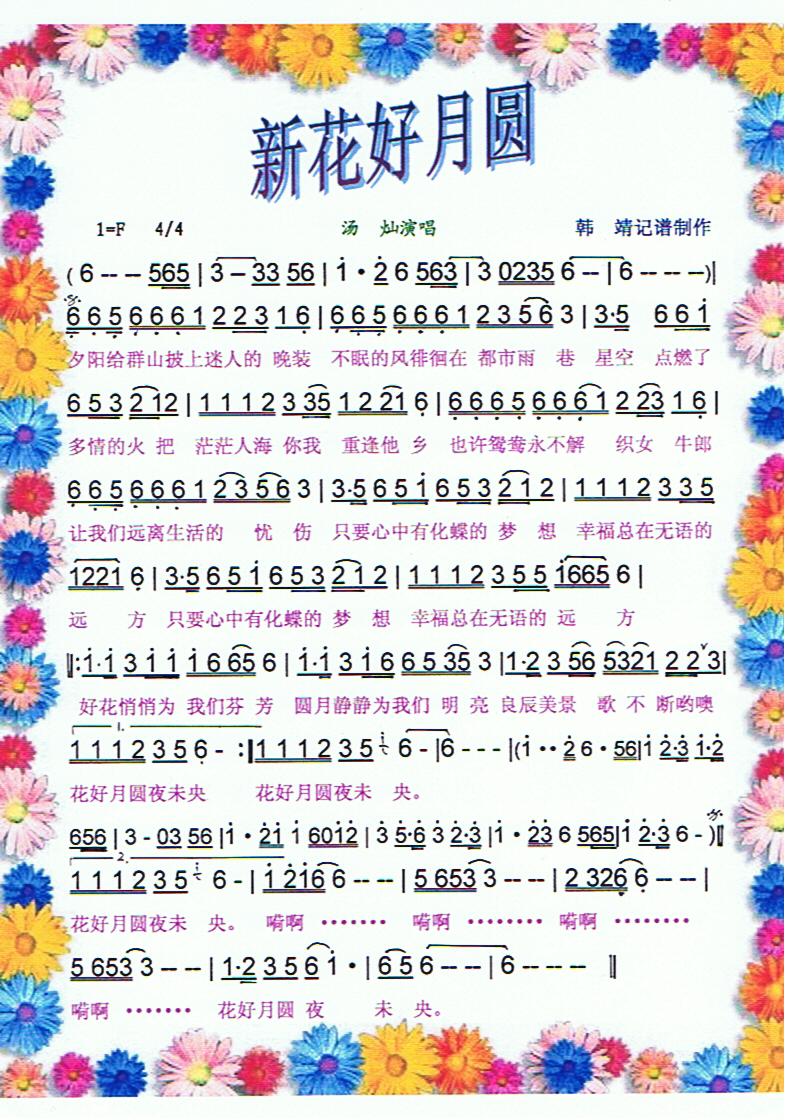 新花好月圆
1=F 4/4 汤 灿演唱 韩 靖记谱制作
( 6 -- -- 565 | 3 — 33 56 | i · 2 6 563 | 3 0235 6 -- | 6 -- -- -- )|
6 6 5 6 6 6 1 2 2 3 1 6 | 6 6 5 6 6 6 1 2 3 5 6 3 | 3·5 6 6 i
夕阳给群山披上迷人的 晚装 不眠的风徘徊在 都市雨 巷 星空 点燃了
6 5 3 2 12 | 1 1 1 2 3 35 1 2 21 6 | 6 6 6 5 6 6 6 1 2 23 1 6 |
多情的火 把 茫茫人海 你我 重逢他 乡 也许鸳鸯永不解 织女 牛郎
6 6 5 6 6 6 1 2 3 5 6 3 | 3·5 6 5 i 6 5 3 2 1 2 | 1 1 1 2 3 3 5
让我们远离生活的 忧 伤 只要心中有化蝶的 梦 想 幸福总在无语的
1221 6 | 3·5 6 5 i 6 5 3 2 1 2 | 1 1 1 2 3 5 5 i665 6 |
远 方 只要心中有化蝶的 梦 想 幸福总在无语的 远 方
‖: i·i 3 i i i 6 65 6 | i·i 3 i 6 6 5 35 3 | 1·2 3 56 5321 2 2 3 |
好花悄悄为 我们芬 芳 圆月静静为我们 明 亮 良辰美景 歌 不 断哟噢
1.
1 1 1 2 3 5 6 - :‖ 1 1 1 2 3 5 i 6 - | 6 - - - |( i ·· 2 6 · 56 | i 2·3 i·2
花好月圆夜未央 花好月圆夜未 央。
656 | 3 - 03 56 | i · 2i i 60i2 | 3 5·6 3 2·3 | i · 23 6 565 | i 2·3 6 - )‖
2.
1 1 1 2 3 5 i 6 - | i 2i6 6 -- -- | 5 653 3 -- -- | 2 326 6 -- -- |
花好月圆夜未 央。 嗬啊 ······· 嗬啊 ········ 嗬啊 ········
5 653 3 -- -- | 1·2 3 5 6 i · | 6 5 6 -- -- | 6 -- -- -- ‖
嗬啊 ······· 花好月圆 夜 未 央。